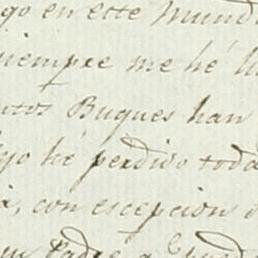 go en este Mund
siempre me hé h
ntos Buques han
yo hé perdido toda
a, con escepcion d
un Padre, a